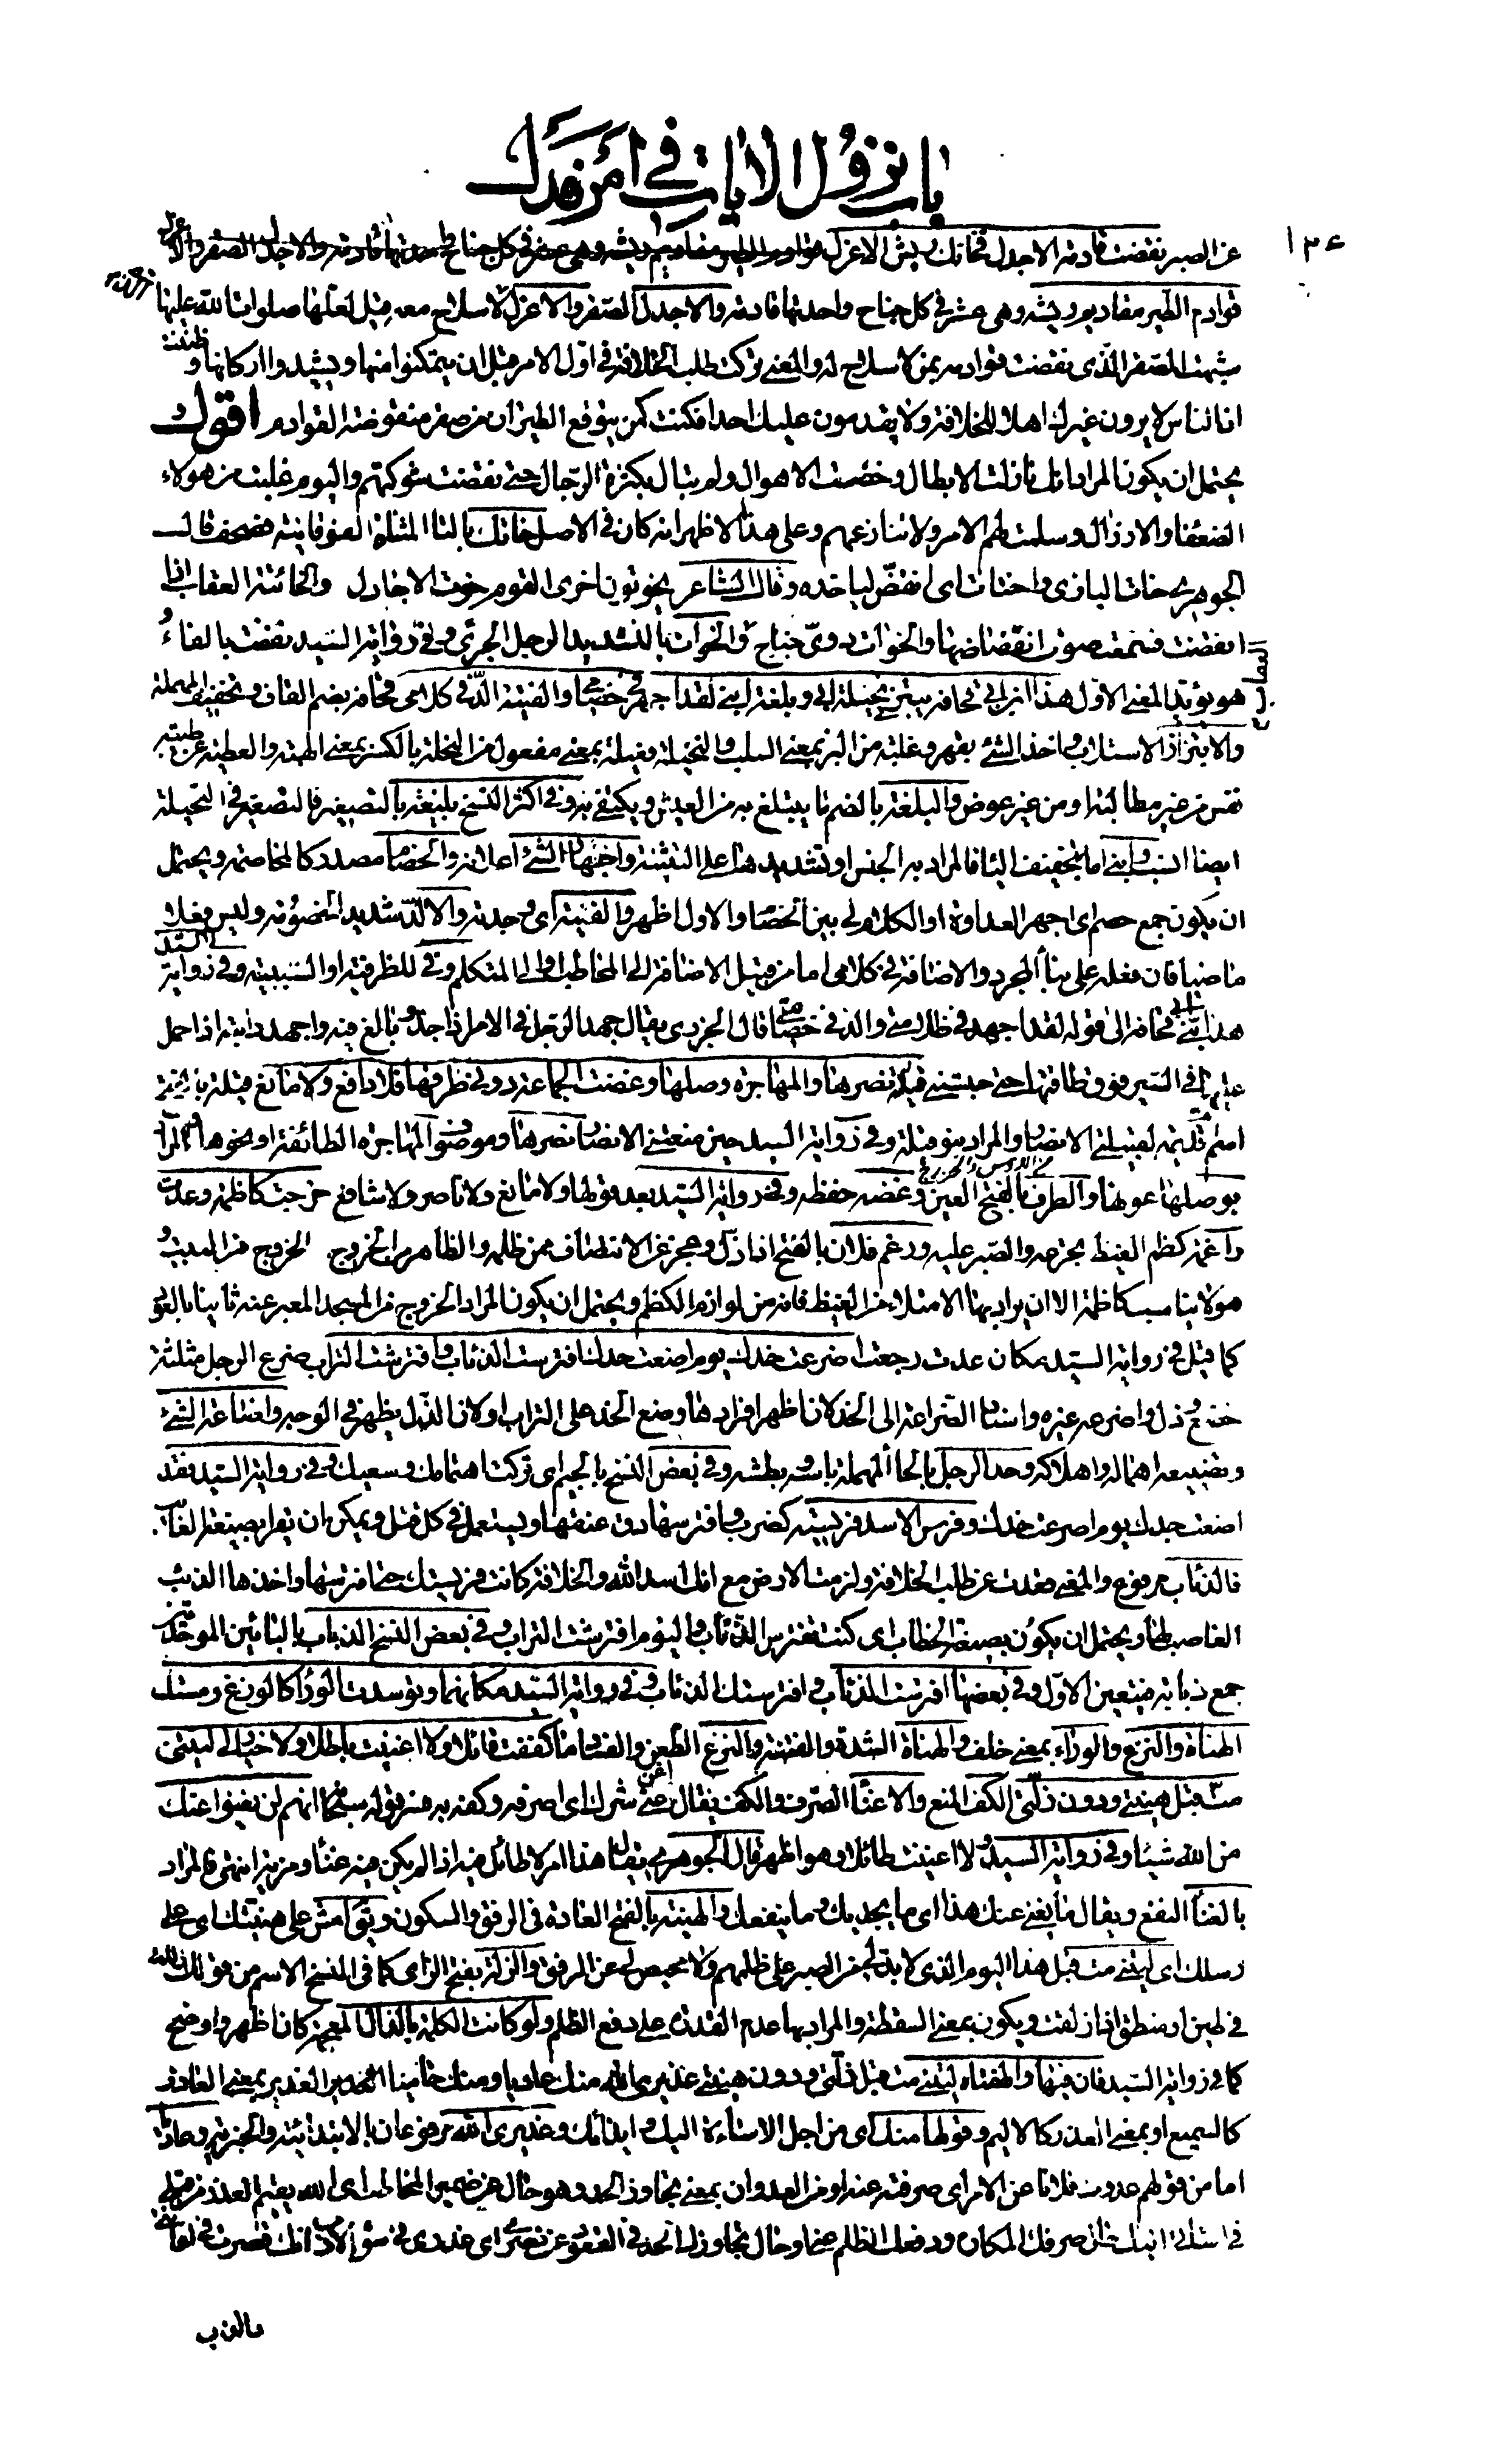 باب نزول الايات في امر فدك
١٣٤
عن الصبر نقضت قادمة الاجدل فخانك ريش الاعزل قوادم الطير مقاديم ريشه وهي عشر في كل جناح واحدتها قادمة والاجدل الصقر والاعزل
قوادم الطير مقاديم ريشه وهي عشر في كل جناح واحدتها قادمة والاجدل الصقر والاعزل لاسلاح معه قيل لعلها صلوات الله عليها
شبهت الصقر الذي نقضت قوادمه بمن لا سلاح له والمعنى تركت طلب الخلافة في اول الامر قبل ان يتمكنوا منها ويشيدوا اركانها وظننت
ان الناس لا يرون غيرك اهلا للخلافة ولا يقدمون عليك احدا فكنت كمن يتوقع الطيران من صقر منقوضة القوادم اقول و
يحتمل ان يكون المراد انك نازلت الابطال وخضت الاهوال ولم تبال بكثرة الرجال حتى نقضت شوكتهم واليوم غلبت من هؤلاء
الضعفاء والارذال وسلمت لهم الامر ولا تنازعهم وعلى هذا الاظهر انه كان في الاصل خاتك بالتاء المثناة الفوقانية فصحف قال
الجوهري خات البازي واختات اي انقض لياخذه وقال الشاعر يخوتون اخرى القوم خوت الاجادل والخائتة العقاب اذا
انقضت فسمعت صوت انقضاضها والخوات دوي جناح والخوات بالتشديد الرجل الجرئ وفي رواية السيد نفضت بالفاء
وهو يؤيد المعنى الاول هذا ابن ابي قحافة يبتزني نحيلة ابي وبلغة ابني لقد اجهر في خصامي والفيته الد في كلامي قحافة بضم القاف وتخفيف المهملة
والابتزاز الاستلاب واخذ الشئ بقهر وغلبة من البز بمعنى السلب والنحيلة فعيلة بمعنى مفعول من النحلة بالكسر بمعنى الهبة والعطية عن طيبة
نفس من غير مطالبة او من غير عوض والبلغة بالضم ما يتبلغ به من العيش ويكتفي به وفي اكثر النسخ بليغة بالتصغير فالتصغير في النحيلة
ايضا انسب وابني اما بتخفيف الياء فالمراد به الجنس او تشديدها على التثنية واجهار الشئ اعلانه والخصام مصدر كالمخاصمة ويحتمل
ان يكون جمع خصم اي اجهر العداوة او الكلام لي بين الخصام والاول اظهر والفيته اي وجدته والالد شديد الخصومة وليس فعلا
ماضيا فان فعله على بناء المجرد والاضافة في كلامي اما من قبيل الاضافة الى المخاطب او الى المتكلم وفي للظرفية او السببية وفي رواية السيد
هذا بني ابي قحافة الى قوله لقد اجهد في ظلامتي والد في خصامي قال الجزري يقال جهد الرجل في الامر اذا جد وبالغ فيه واجهد دابته اذا حمل
عليها في السير فوق طاقتها حتى حبستني قيلة نصرها والمهاجرة وصلها وغضت الجماعة دوني طرفها فلا دافع ولا مانع قيلة بالفتح
اسم ام قديمة لقبيلتي الانصار والمراد بنو قيلة وفي رواية السيد حين منعتني الانصار نصرها وموصوف المهاجرة الطائفة او نحوها والمراد
من الاوس والخزرج
بوصلها عونها والطرف بالفتح العين وغضه خفضه وفي رواية السيد بعد قولها ولا مانع ولا ناصر ولا شافع خرجت كاظمة وعدت
راغمة كظم الغيظ تجرعه والصبر عليه ورغم فلان بالفتح اذا ذل وعجز عن الانتصاف ممن ظلمه والظاهر من الخروج الخروج من البيت و
هو لا يناسب كاظمة الا ان يراد بها الامتلاء من الغيظ فانه من لوازم الكظم ويحتمل ان يكون المراد الخروج من المسجد المعبر عنه ثانيا بالعود
كما قيل في رواية السيد مكان عدت رجعت اضرعت خدك يوم اضعت حدك افترست الذئاب وافترشت التراب ضرع الرجل مثلثة
خضع وذل واضرعه غيره واسناد الضراعة الى الخد لان اظهر افرادها وضع الخد على التراب او لان الذل يظهر في الوجه واضاعة الشئ
وتضييعه اهماله واهلاكه وحد الرجل بالحاء المهملة باسه وبطشه وفي بعض النسخ بالجيم اي تركت اهتمامك وسعيك وفي رواية السيد فقد
اضعت جدك يوم اصرعت خدك وفرس الاسد فريسته كضرب وافترسها دق عنقها ويستعمل في كل قتل ويمكن ان يقرا بصيغة الغائب
فالذئاب مرفوع والمعنى قعدت عن طلب الخلافة ولزمت الارض مع انك اسد الله والخلافة كانت فريستك حتى افترسها واخذها الذئب
الغاصب لها ويحتمل ان يكون بصيغة الخطاب اي كنت تفترس الذئاب واليوم افترشت التراب وفي بعض النسخ الذباب بالبائين الموحدتين
جمع ذبابة فيتعين الاول وفي بعضها افترست الذئاب وافترستك الذئاب وفي رواية السيد مكانهما وتوسدت الوراء كالوزغ ومستك
الهناة والنزع والوراء بمعنى خلف والهناة الشدة والفتنة والنزغ الطعن والفساد ما كففت قائلا ولا اغنيت باطلا ولا خيار لي ليتني
مت قبل هينتي ودون ذلتي الكف المنع والاغناء الصرف والكف يقال اغن عني شرك اي اصرفه وكفه وبه فسر قوله سبحانه انهم لن يغنوا عنك
من الله شيئا وفي رواية السيد ولا اغنيت طائلا وهو اظهر قال الجوهري يقال هذا امر لا طائل فيه اذا لم يكن فيه غناء ومزية انتهى فالمراد
بالغناء النفع ويقال ما يغني عنك هذا اي ما يجديك وما ينفعك والهينة بالفتح العادة في الرفق والسكون ويقال امش على هينتك اي على
رسلك اي ليتني مت قبل هذا اليوم الذي لا بد لي من الصبر على ظلمهم ولا محيص لي عن الرفق والزلة بفتح الزاي كما في النسخ الاسم من قولك زللت
في طين او منطق اذا زلقت ويكون بمعنى السقطة والمراد بها عدم القدرة على دفع الظلم ولو كانت الكلمة بالذال المعجمة كان اظهر واوضح
كما في رواية السيد فان فيها والهفتاه ليتني مت قبل ذلتي ودون هينتي عذيري الله منك عاديا ومنك حاميا العذير بمعنى العاذر
كالسميع او بمعنى العذر كالاليم وقولها منك اي من اجل الاساءة اليك وايذائك وعذيري الله مرفوعان بالابتدائية والخبرية وعاديا
اما من قولهم عدوت فلانا عن الامر اي صرفته عنه او من العدوان بمعنى تجاوز الحد وهو حال عن ضمير المخاطب اي الله يقيم العذر من قبلي
في اساءتي اليك حال صرفك المكاره ودفعك الظلم عني او حال تجاوزك الحد في القعود عن نصري اي عذري في سوء الادب انك قصرت في اعانتي
والذب